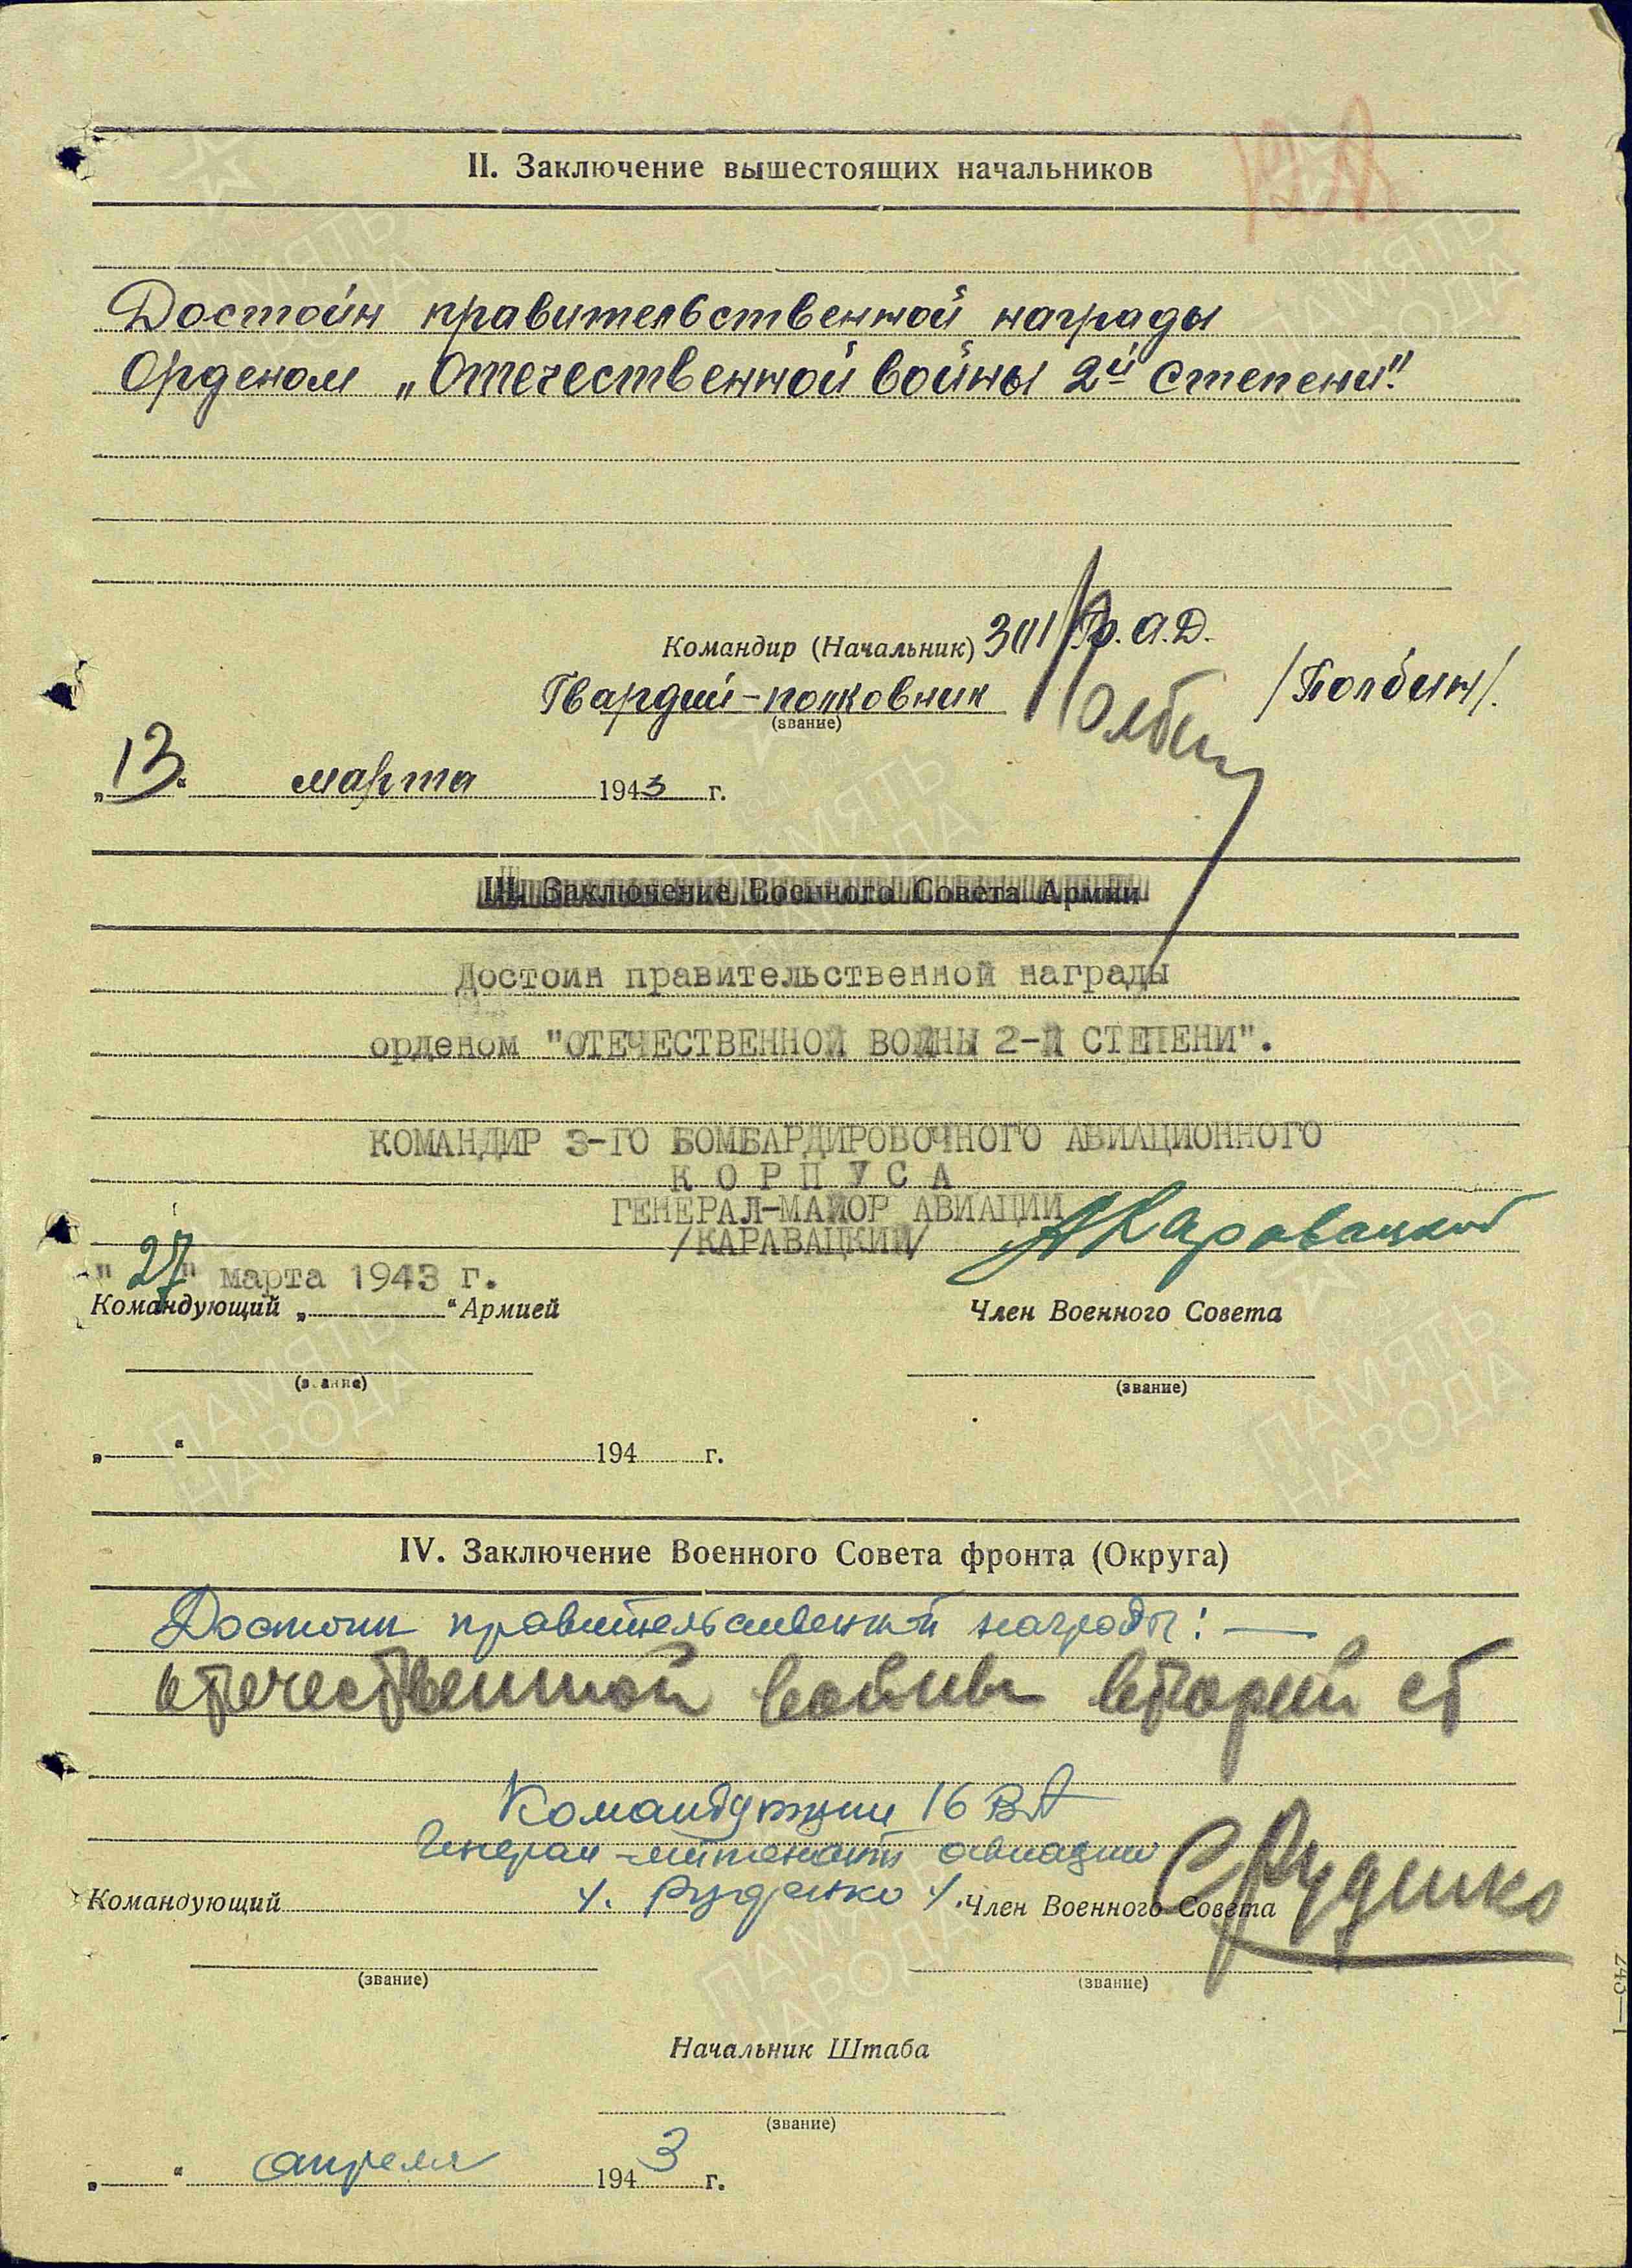 II. Заключение вышестоящих начальников
Достойн правительственной награды
Орденом „Отечественной войны 2й степени".
Командир (Начальник) 301 Бр. А.Д.
Гвардий-полковник Полбин /Полбин/.
(звание)
„13“ марта 1943 г.
III. Заключение Военного Совета Армии
Достоин правительственной награды
орденом "ОТЕЧЕСТВЕННОЙ ВОЙНЫ 2-Й СТЕПЕНИ".
КОМАНДИР 3-ГО БОМБАРДИРОВОЧНОГО АВИАЦИОННОГО
КОРПУСА
ГЕНЕРАЛ-МАЙОР АВИАЦИИ
/КАРАВАЦКИЙ/ АКаравацкий
"27" марта 1943 г.
Командующий „ “ Армией Член Военного Совета
(звание) (звание)
„ “ 194 г.
IV. Заключение Военного Совета фронта (Округа)
Достоин правительственной награды: —
отечественной войны второй ст
Командующий 16 ВА
Генерал-лейтенант авиации
Командующий /. Руденко /. Член Военного Совета СРуденко
(звание) (звание)
Начальник Штаба
(звание)
„ “ апреля 1943 г.
245—1
ПАМЯТЬ
НАРОДА